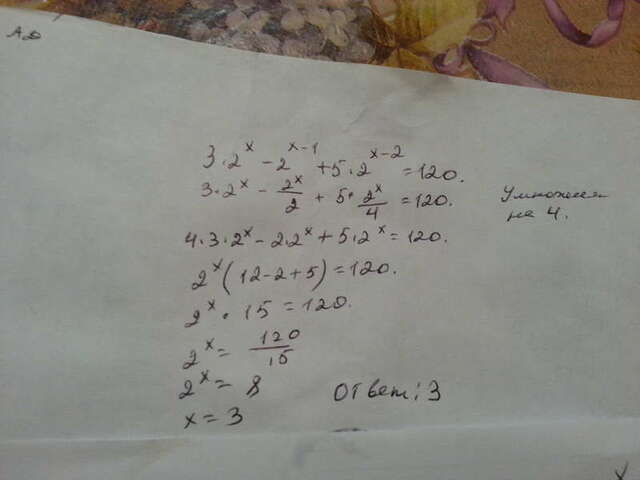 АД
3·2^x − 2^(x−1) + 5·2^(x−2) = 120.
3·2^x − 2^x/2 + 5·2^x/4 = 120.
Умножаем
на 4.
4·3·2^x − 2·2^x + 5·2^x = 120.
2^x(12−2+5) = 120.
2^x · 15 = 120.
2^x = 120/15
2^x = 8
x = 3
Ответ: 3